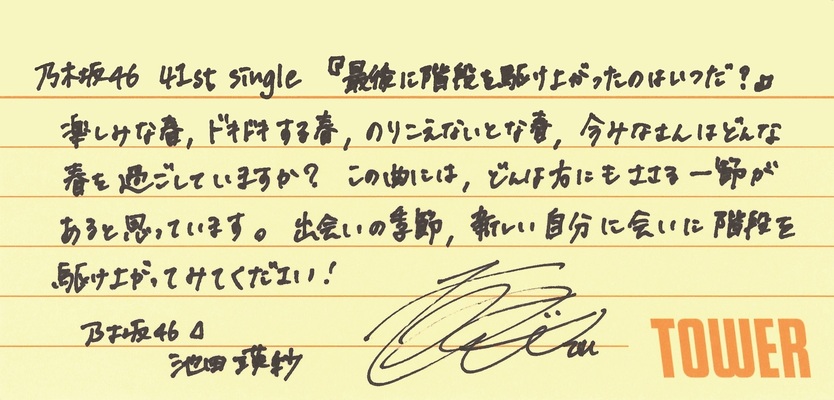 乃木坂46 41st single 『最後に階段を駆け上がったのはいつだ?』
楽しみな春, ドキドキする春, のりこえないとな春, 今みなさんはどんな
春を過ごしていますか? この曲には, どんな方にもささる一節が
あると思っています。 出会いの季節, 新しい自分に会いに階段を
駆け上がってみてください!
乃木坂46
池田瑛紗
TOWER